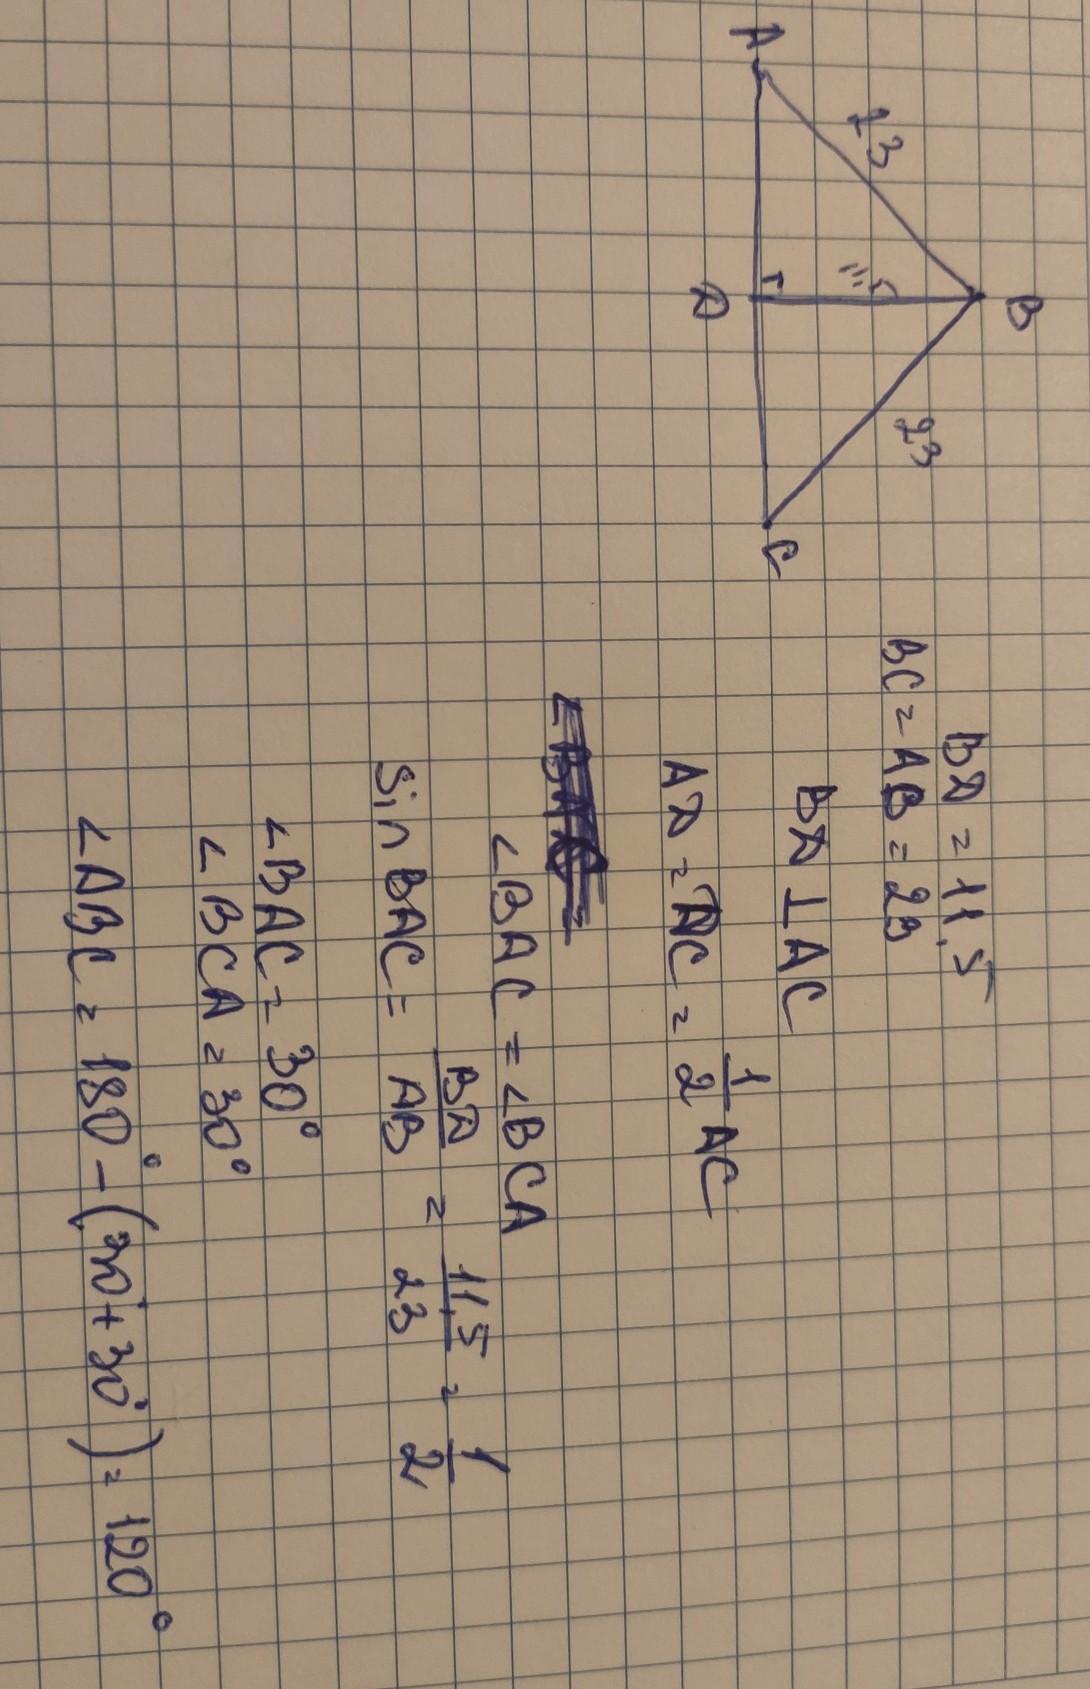 A
23
11,5
D
B
23
C
BD = 11,5
BC = AB = 23
BD ⊥ AC
AD = DC = 1/2 AC
∠BAC = ∠BCA
Sin BAC = BD/AB = 11,5/23 = 1/2
∠BAC = 30°
∠BCA = 30°
∠ABC = 180° - (30° + 30°) = 120°